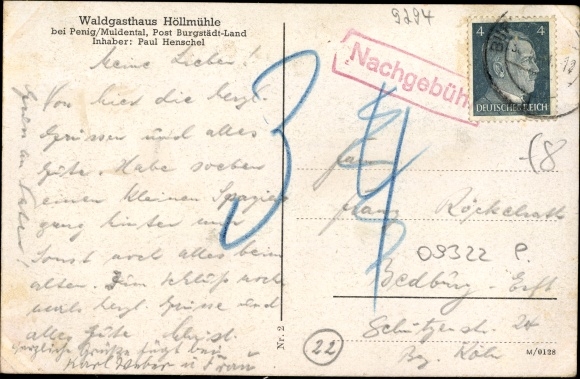 Waldgasthaus Höllmühle
bei Penig/Muldental, Post Burgstädt-Land
Inhaber: Paul Henschel
Meine Lieben!
Von hier die herzl.
Grüssen und alles
Gute. Habe soeben
einen kleinen Spazier
gang hinter mir
Sonst noch alles beim
alten. Zum Schluß noch
mals herzl. Grüsse und
alles Gute
herzliche Grüße fügt bei
Karl Weber u Frau
9294
Nachgebühr
4 4
DEUTSCHES REICH
34
Franz Röckelrath
09322 P.
Bedburg - Erft
Schützenstr. 24
Bez. Köln
Nr. 2
22
M/0128